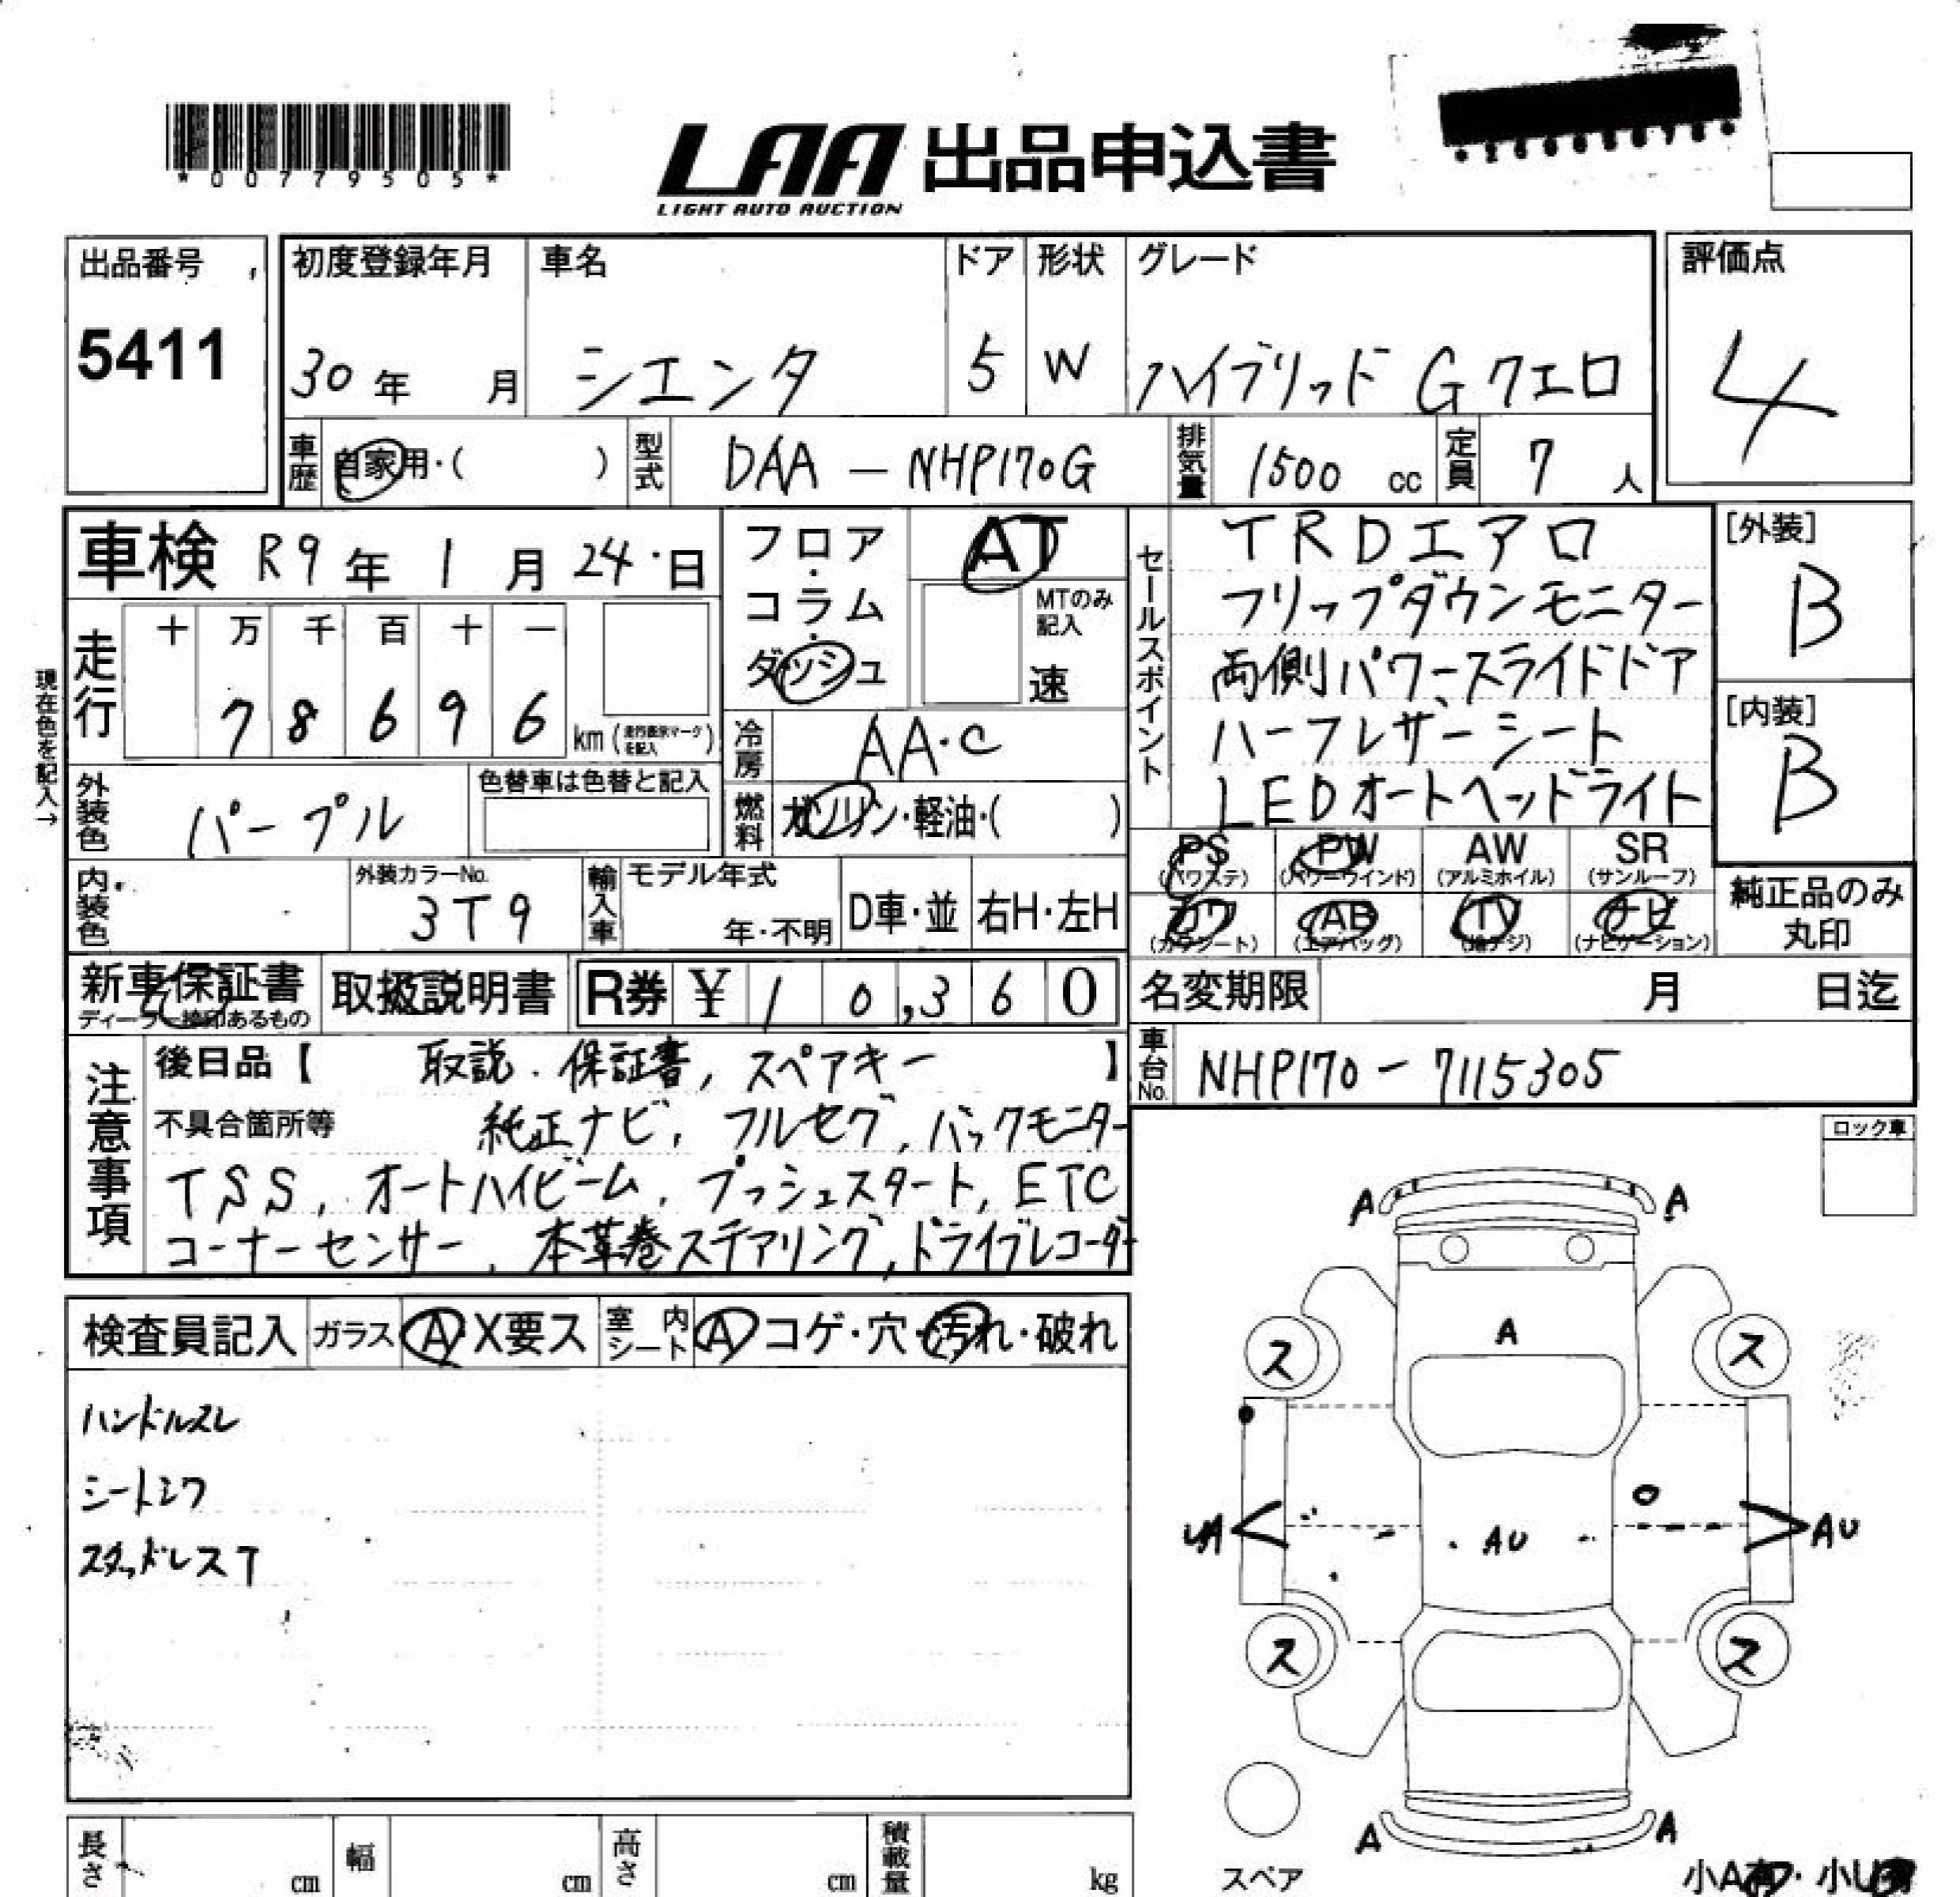 *00779505*
LAA 出品申込書
LIGHT AUTO AUCTION
出品番号 初度登録年月 車名 ドア 形状 グレード 評価点
5411 30年 月 シエンタ 5 W ハイブリッド G クエロ 4
車歴 自家用・( ) 型式 DAA－NHP170G 排気量 1500 cc 定員 7 人
車検 R9年 1月 24日 フロア・コラム・ダッシュ AT
MTのみ記入 速
セールスポイント
TRDエアロ
フリップダウンモニター
両側パワースライドドア
ハーフレザーシート
LEDオートヘッドライト
[外装]
B
[内装]
B
現在色を記入→
走行 十 万 千 百 十 一
7 8 6 9 6 km (走行表示マークを記入)
冷房 AA・C
外装色 パープル 色替車は色替と記入 燃料 ガソリン・軽油・( )
PS (パワステ) PW (パワーウインド) AW (アルミホイル) SR (サンルーフ)
カワ (カワシート) AB (エアバッグ) TV (地デジ) ナビ (ナビゲーション)
純正品のみ丸印
内装色 外装カラーNo. 3T9 輸入車 モデル年式 年・不明 D車・並 右H・左H
新車保証書 ディーラー捺印あるもの 取扱説明書 R券 ¥ 10,360 名変期限 月 日迄
車台No. NHP170－7115305
注意事項
後日品【 取説・保証書, スペアキー 】
不具合箇所等 純正ナビ, フルセグ, バックモニター
TSS, オートハイビーム, プッシュスタート, ETC
コーナーセンサー, 本革巻ステアリング, ドライブレコーダー
ロック車
検査員記入 ガラス A・X要ス 室内シート A コゲ・穴・汚れ・破れ
ハンドルスレ
シートシワ
スタッドレスT
A A
A
ス ス
UA AU AU
ス ス
A A
スペア
小A有・小U有
長さ cm 幅 cm 高さ cm 積載量 kg